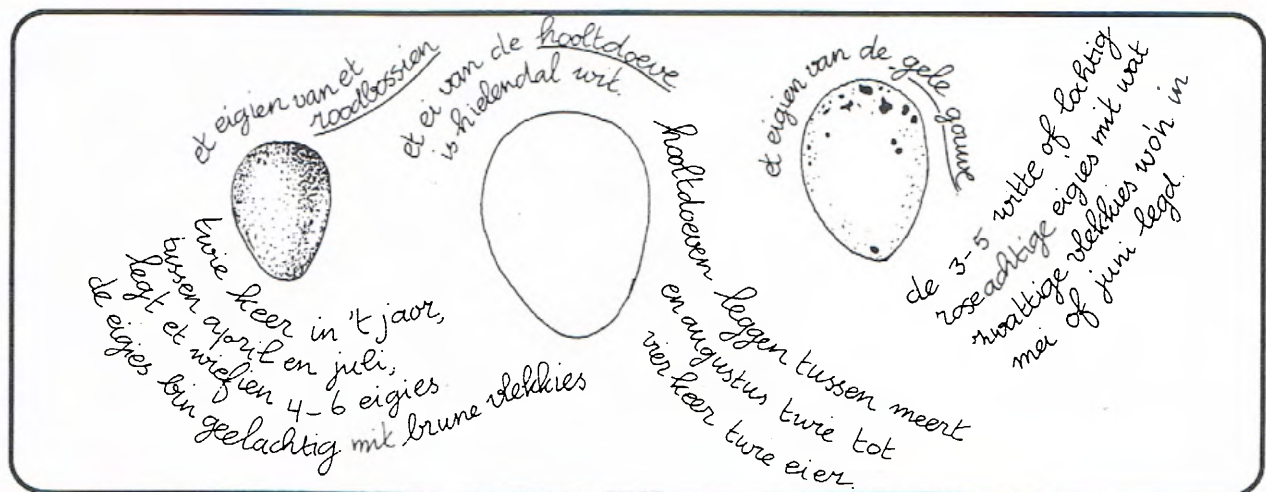 et eigien van et
roodbossien
twie keer in 't jaor,
tussen april en juli,
legt et wiefien 4-6 eigies
de eigies bin geelachtig mit brune vlekkies
et ei van de hooltdoeve
is hielendal wit.
hooltdoeven leggen tussen meert
en augustus twie tot
vier keer twie eier.
et eigien van de gele gouwe
de 3-5 witte of lochtig
roseachtige eigies mit wat
zwattige vlekkies wo'n in
mei of juni legd.